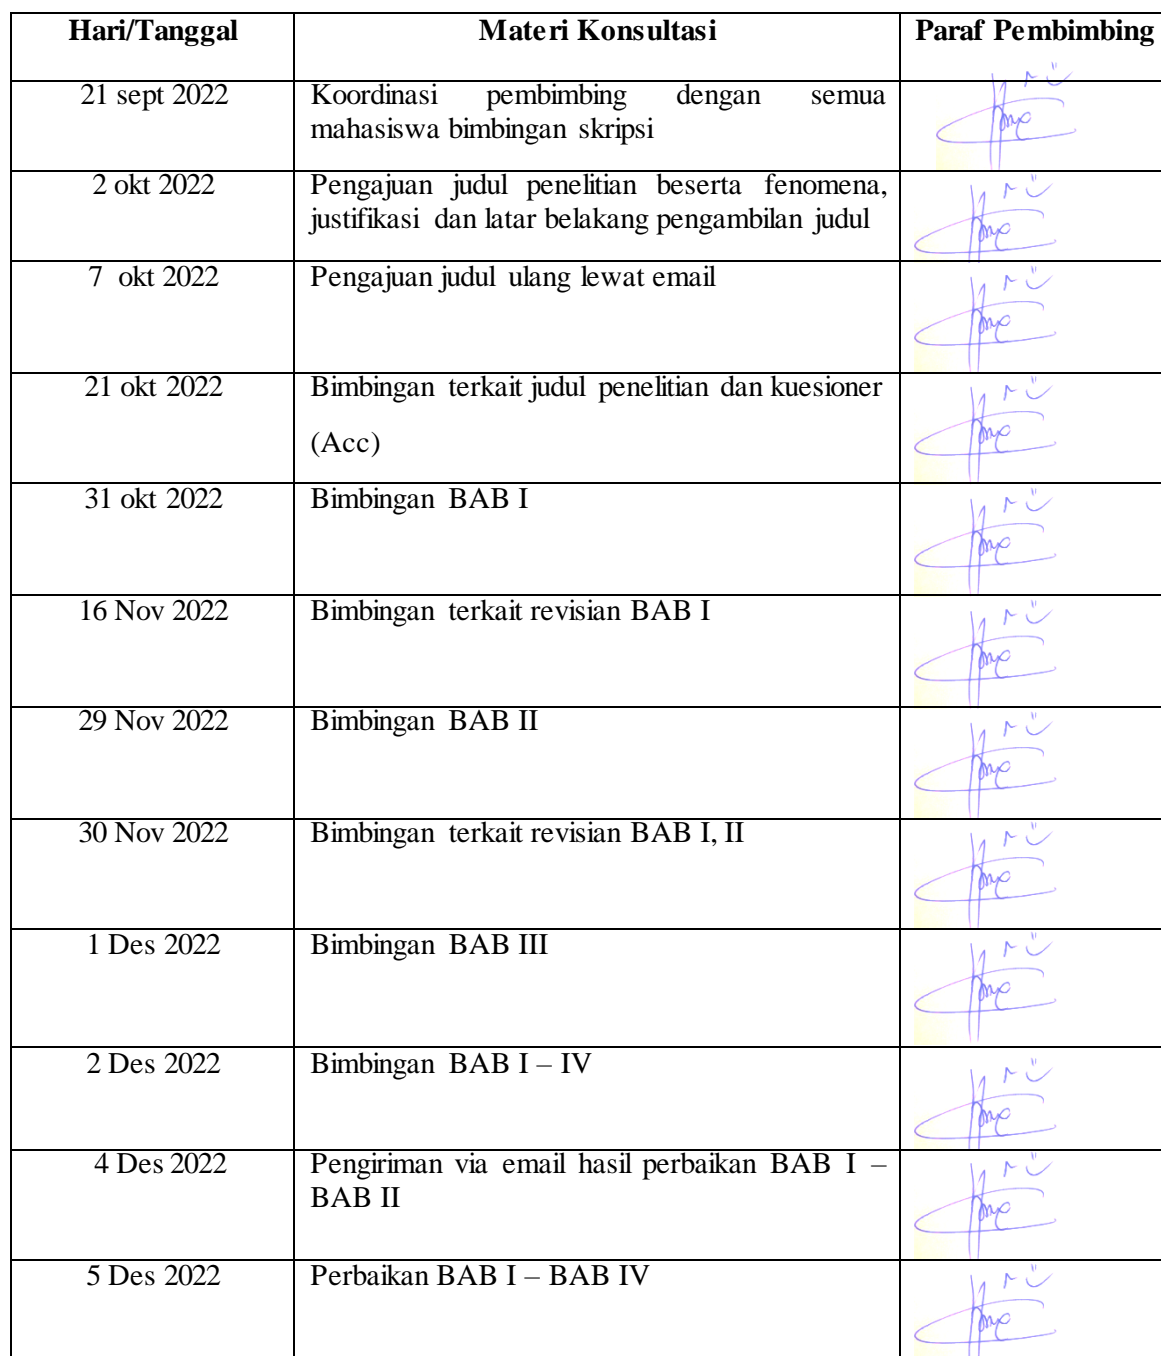 Hari/Tanggal Materi Konsultasi Paraf Pembimbing
21 sept 2022 Koordinasi pembimbing dengan semua
mahasiswa bimbingan skripsi
2 okt 2022 Pengajuan judul penelitian beserta fenomena,
justifikasi dan latar belakang pengambilan judul
7 okt 2022 Pengajuan judul ulang lewat email
21 okt 2022 Bimbingan terkait judul penelitian dan kuesioner
(Acc)
31 okt 2022 Bimbingan BAB I
16 Nov 2022 Bimbingan terkait revisian BAB I
29 Nov 2022 Bimbingan BAB II
30 Nov 2022 Bimbingan terkait revisian BAB I, II
1 Des 2022 Bimbingan BAB III
2 Des 2022 Bimbingan BAB I – IV
4 Des 2022 Pengiriman via email hasil perbaikan BAB I –
BAB II
5 Des 2022 Perbaikan BAB I – BAB IV